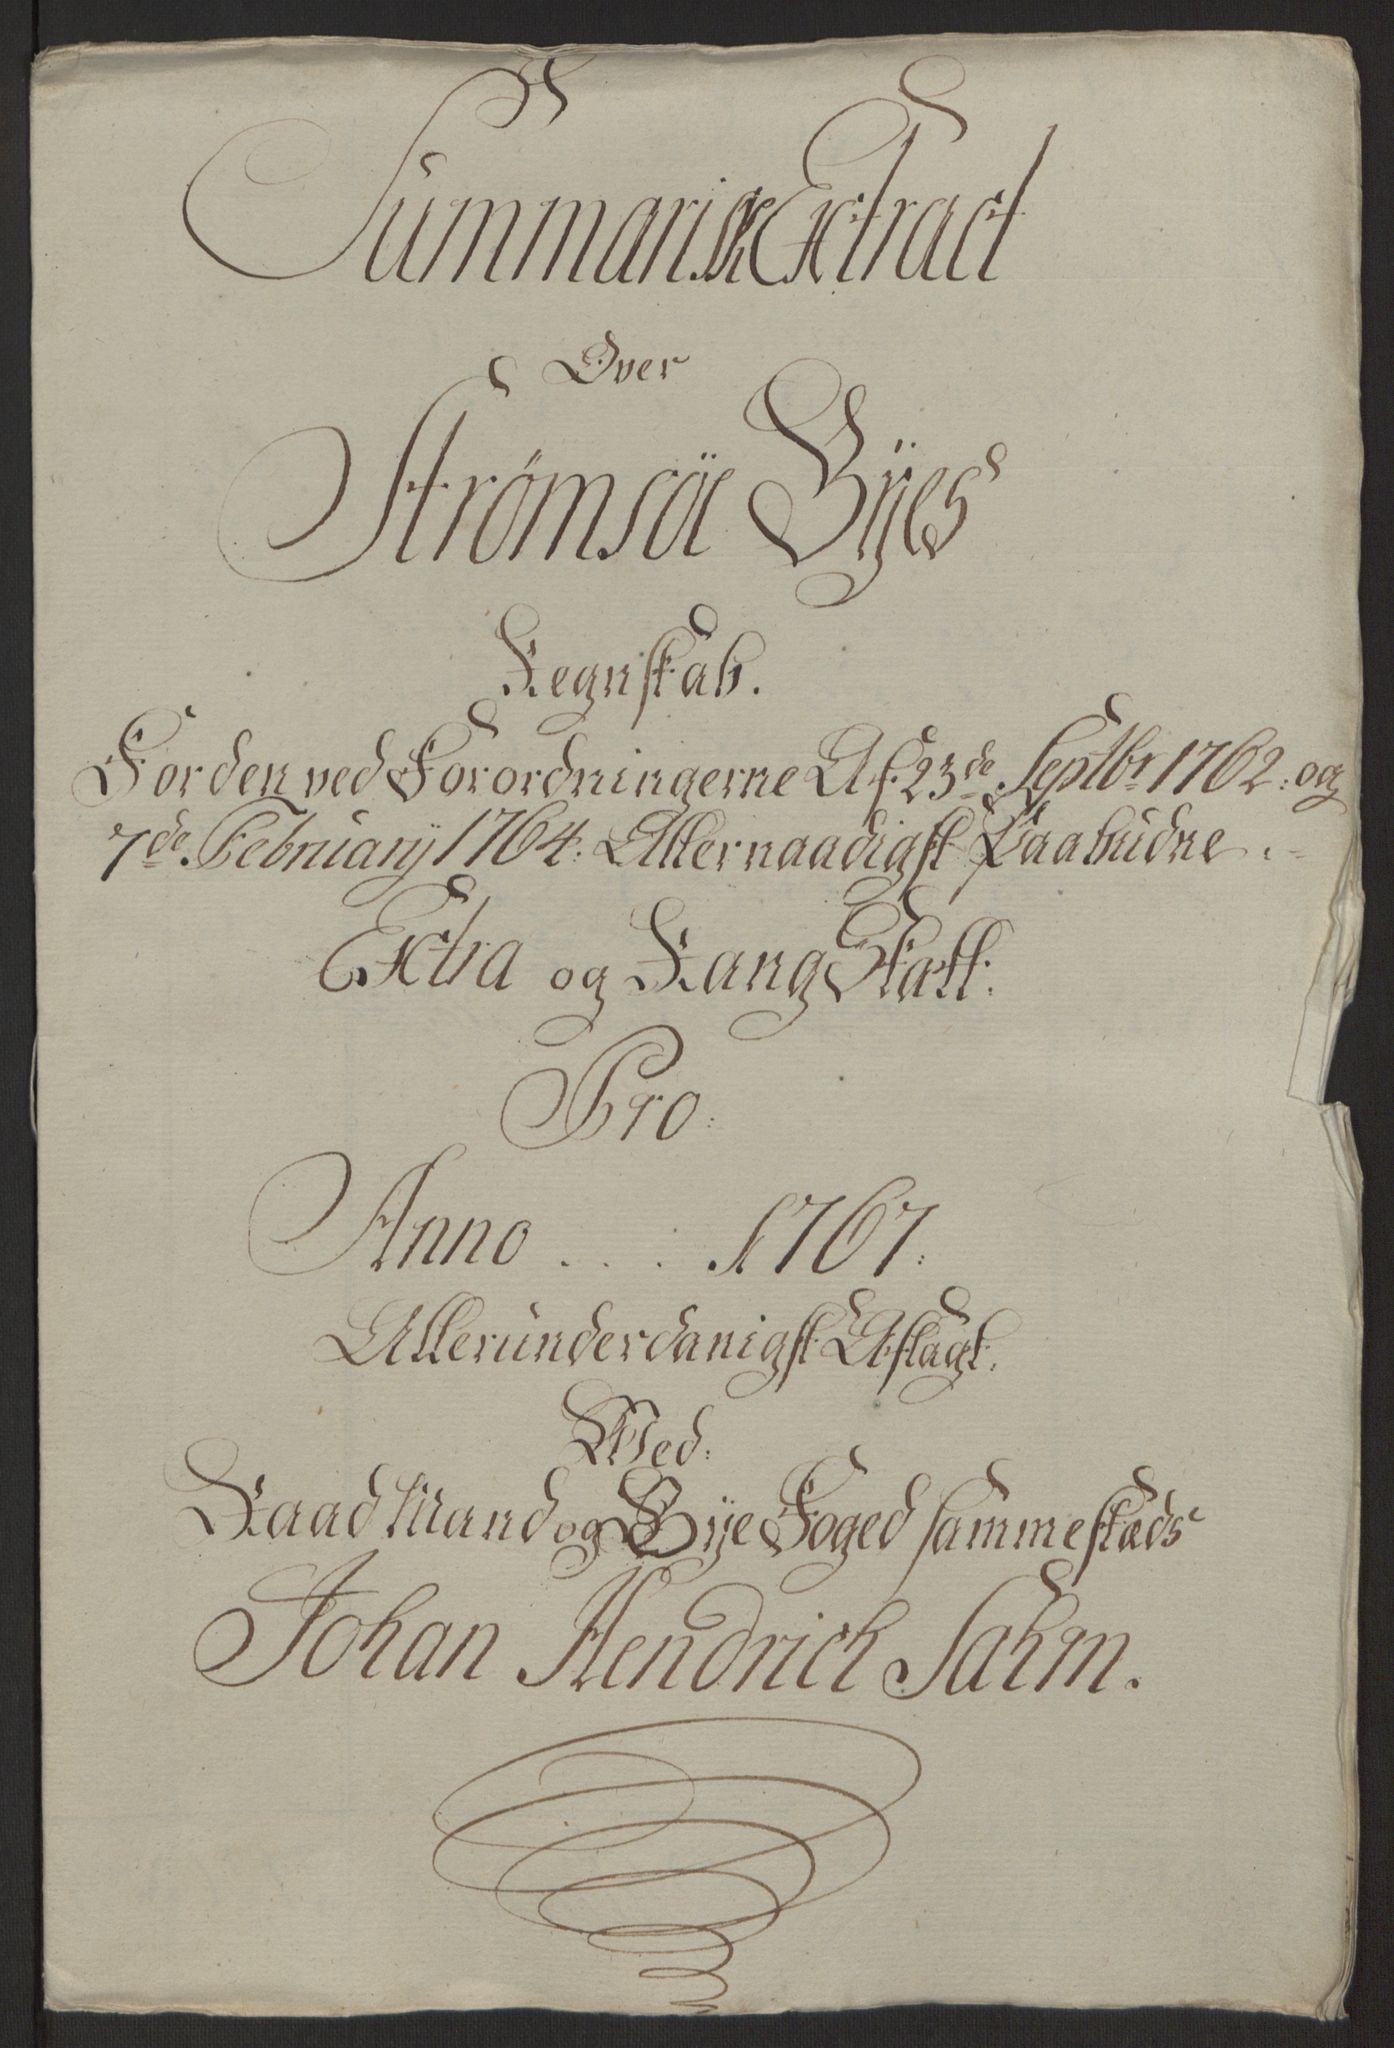 Summarisk Extract
Over
Strømsöe Bÿes
Regnskab.
For den ved Forordningerne Af 23de Septbr 1762. og
7de Februarÿ 1764. Allernaadigst Paabudne
Extra og Rang Skatt.
Pro
Anno .... 1767.
Allerunderdanigst Aflagt.
Med
Raadmand og Bÿe Foged sammestæds
Johan Hendrich Sahm.